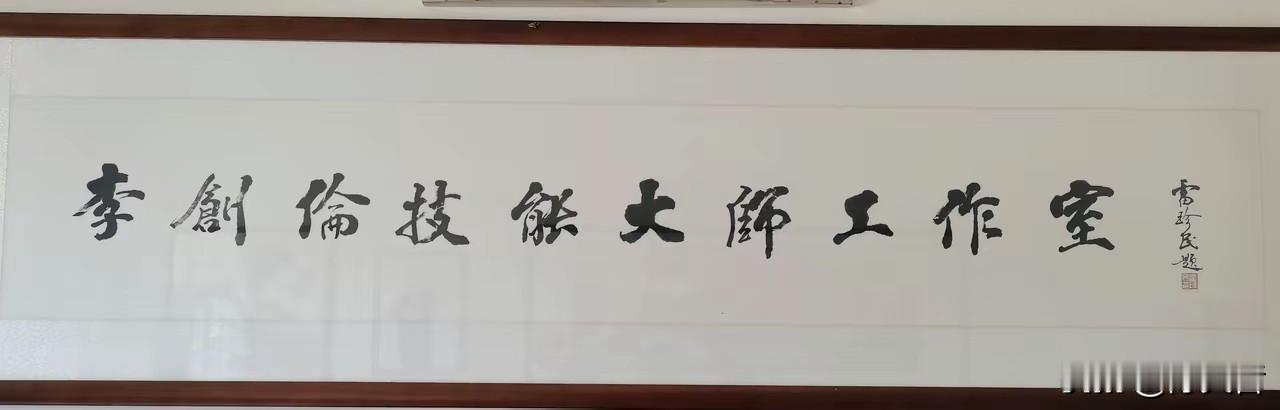 李創倫技能大師工作室
雷珍民題